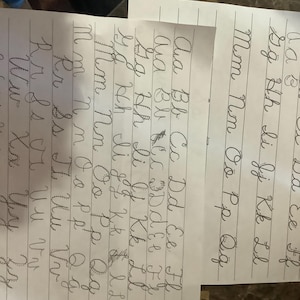 Aa Bb Cc Dd Ee Ff
Aa Bb Dd Ee Ff
Gg Hh Ii Jj Kk Ll
Gg Hh Ii Jj Kk Ll
Mm Nn Oo Pp Qq
Mm Nn Oo Pp Qq
Rr Ss Tt Uu Vv
Rr Ss Tt Uu Vv
Ww Xx Yy Zz
Ee Ff
Gg Hh Ii Jj Kk Ll
Mm Nn Oo Pp Qq